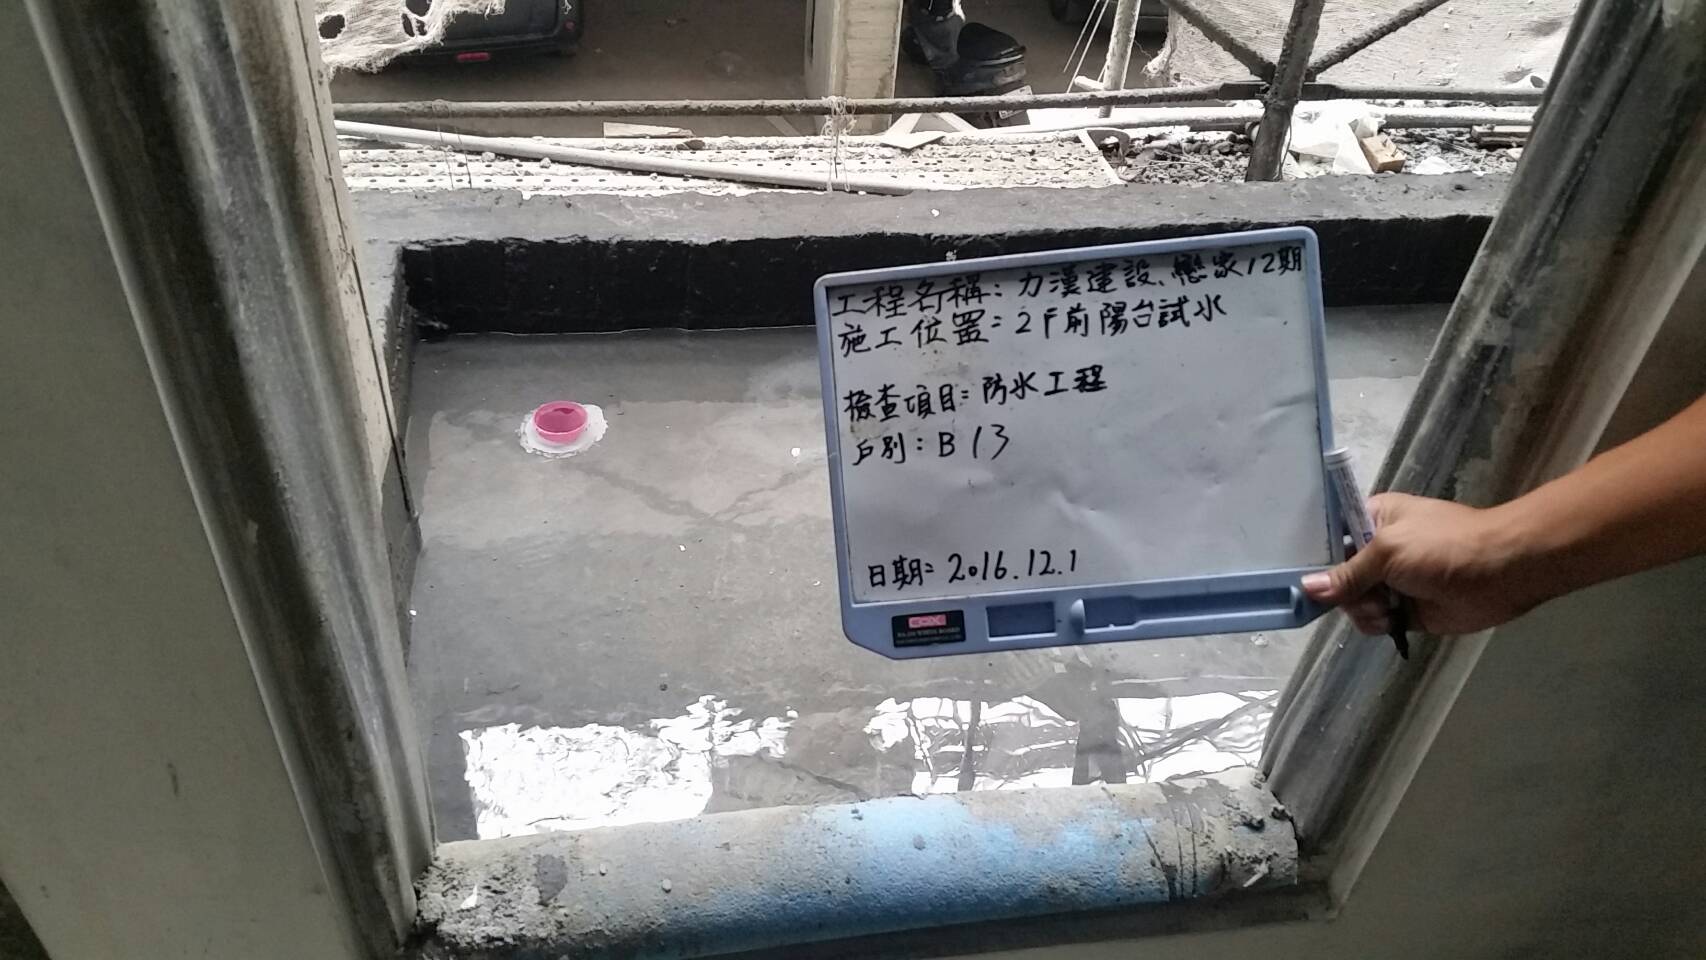 工程名稱: 力漢建設、戀家12期
施工位置: 2F前陽台試水
檢查項目: 防水工程
戶別: B13
日期: 2016.12.1
COX